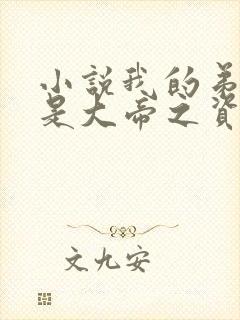 小說我的弟
是大帝之資
文九安